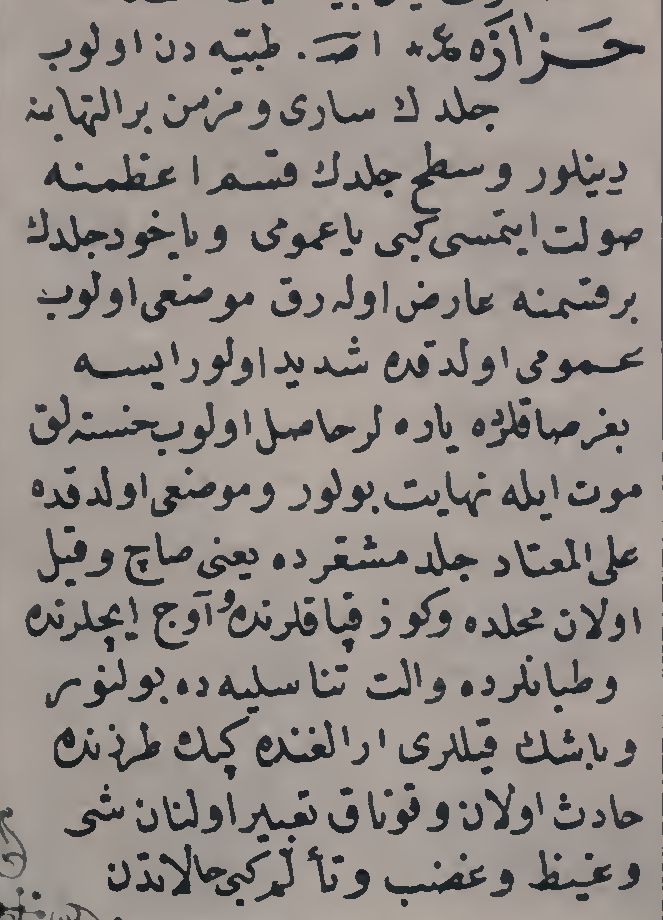 حزازه ع* اصـ. طبيه دن اولوب
جلدك سارى و مزمن بر التهابنه
دينلور و سطح جلدك قسم اعظمنه
صولت ايتمسى كبى يا عمومى و ياخود جلدك
بر قسمنه عارض اوله رق موضعى اولوب
عمومى اولدقده شديد اولور ايسه
بغرصاقلرده ياره لر حاصل اولوب خسته لق
موت ايله نهايت بولور و موضعى اولدقده
على المعتاد جلد مشعرده يعنى صاچ و قيل
اولان محلده و كوز قپاقلرنده و آوج ايچلرنده
و طبانلرده و الت تناسليه ده بولنور
و باشك قيللرى ارالغنده كپك طرزنده
حادث اولان و قوناق تعبير اولنان شى
و غيظ و غضب و تألم كبى حالاتدن